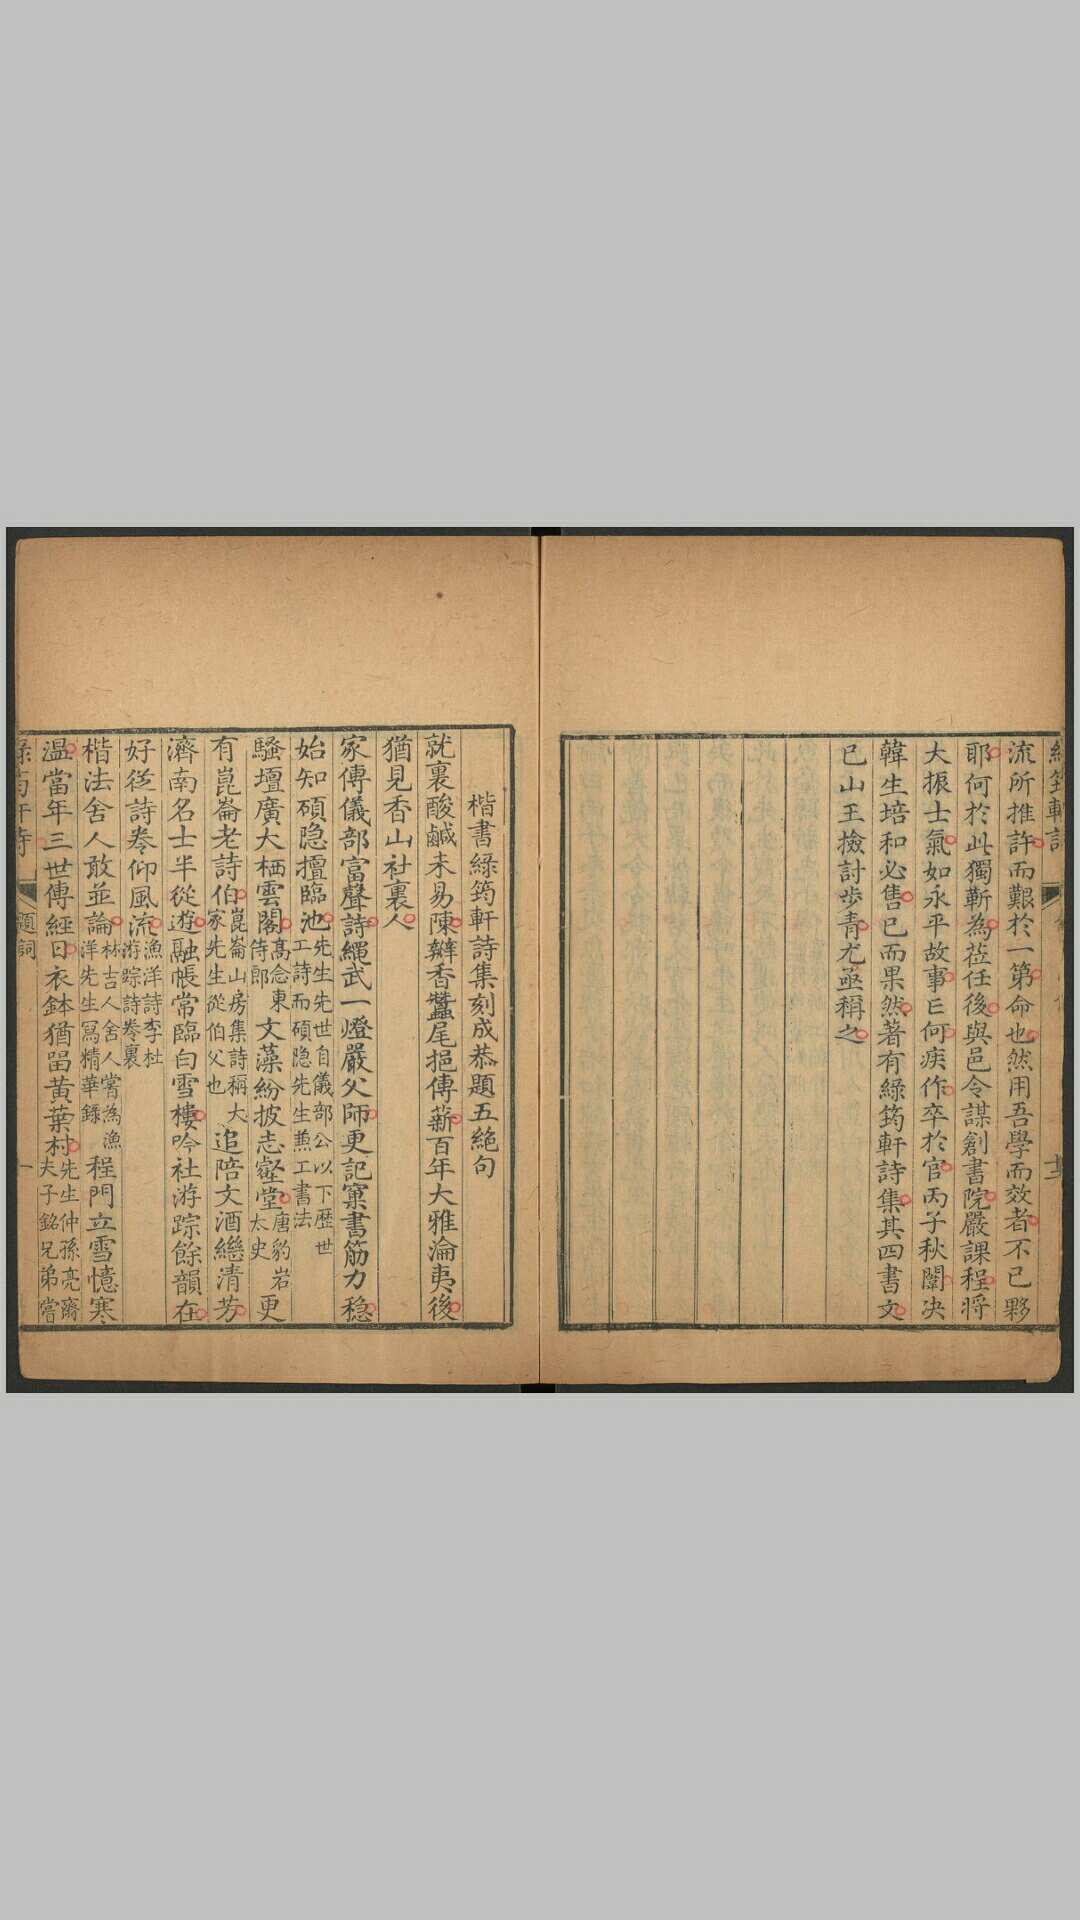 流所推許而艱於一第命也然用吾學而效者不已夥
耶何於此獨靳為莅任後與邑令謀創書院嚴課程将
大振士氣如永平故事㠯何疾作卒於官丙子秋闈决
韓生培和必售已而果然著有緑筠軒詩集其四書文
已山王撿討步青尤亟稱之
楷書緑筠軒詩集刻成恭題五絶句
就裏酸鹹未易陳辦香蠶尾挹傳薪百年大雅淪夷後
猶見香山社裏人
家傳儀部富聲詩繩武一燈嚴父師更記窠書筋力稳
始知碩隐擅臨池先生先世自儀部公以下歴世工詩而碩隐先生蕪工書法
騷壇廣大栖雲閣髙念東侍郎文藻紛披志壑堂唐豹岩太史更
有崑崙老詩伯崑崙山房集詩稱大家先生從伯父也追陪文酒繼清芬
濟南名士半從遊融帳常臨白雪樓吟社游踪餘韻在
好從詩卷仰風流漁洋詩李杜游踪詩卷裏
楷法舍人敢並論林吉人舍人嘗為漁洋先生寫精華錄程門立雪憶寒
温當年三世傳經日衣鉢猶畱黄葉村先生仲孫亮齋夫子銘兄弟嘗
題詞
一